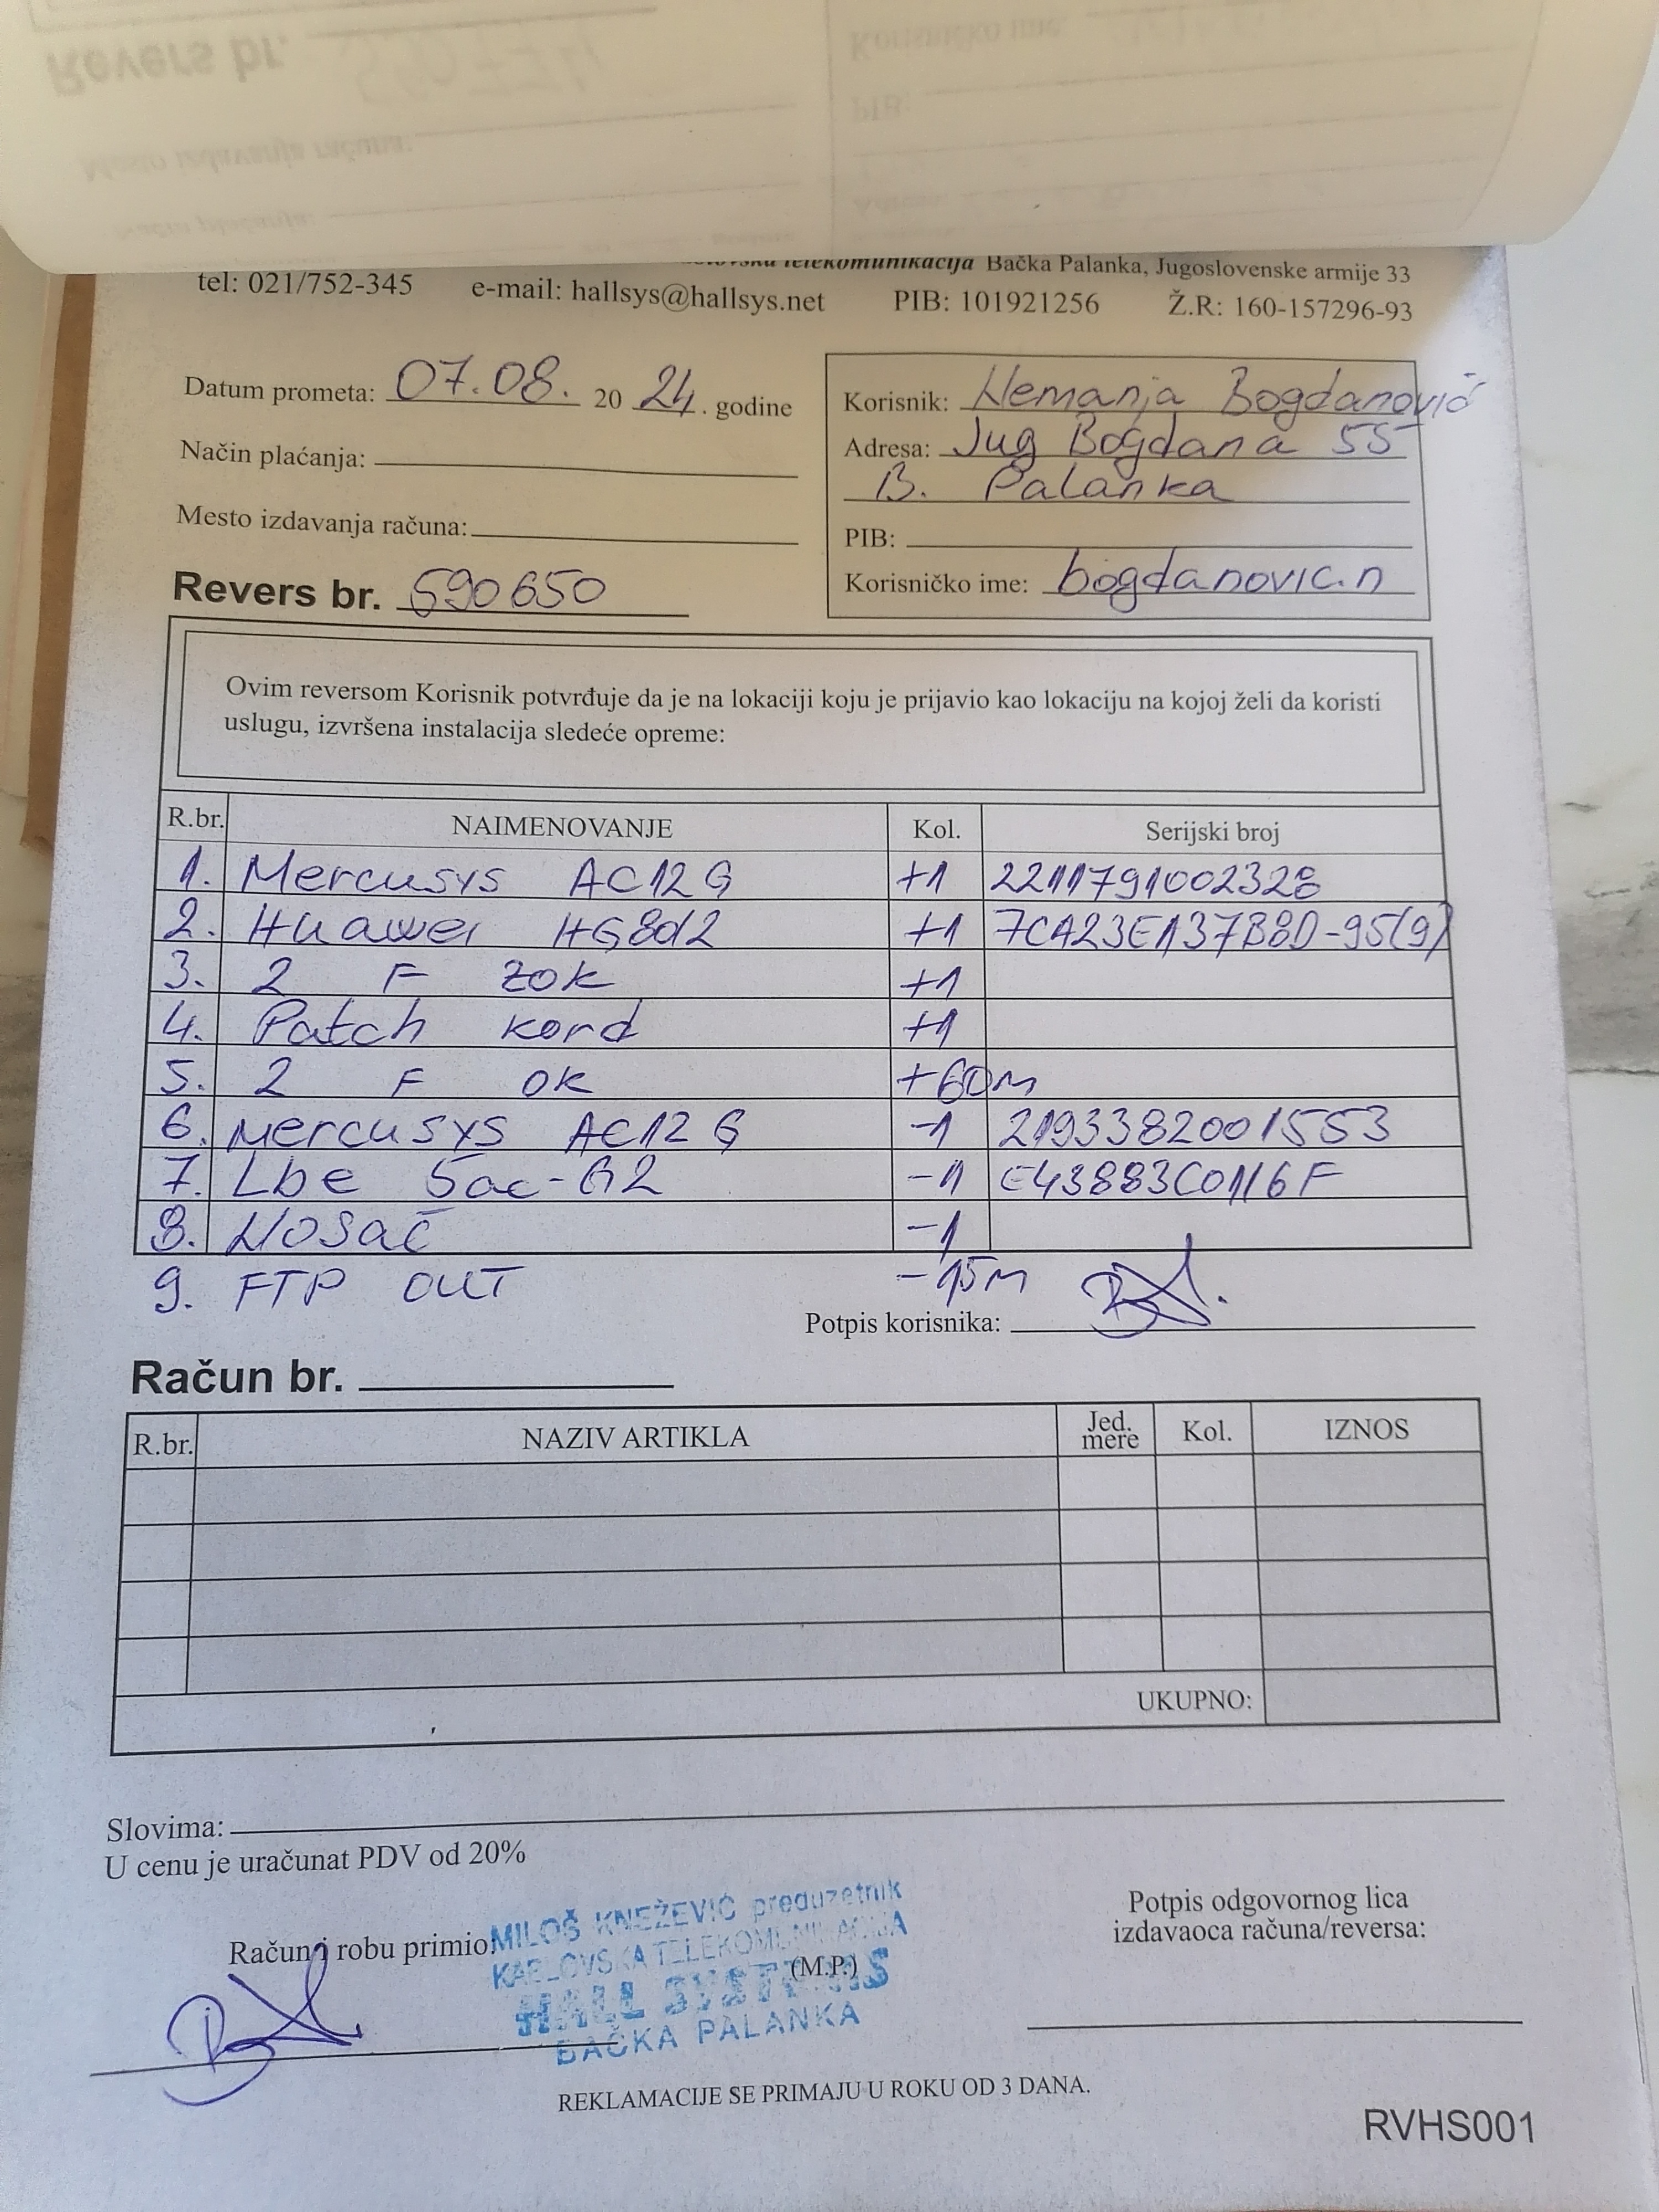 telekomunikacija Bačka Palanka, Jugoslovenske armije 33
tel: 021/752-345 e-mail: hallsys@hallsys.net PIB: 101921256 Ž.R: 160-157296-93
Datum prometa: 07.08. 20 24. godine
Način plaćanja:
Mesto izdavanja računa:
Revers br. 590650
Korisnik: Nemanja Bogdanović
Adresa: Jug Bogdana 55
B. Palanka
PIB:
Korisničko ime: bogdanovic.n
Ovim reversom Korisnik potvrđuje da je na lokaciji koju je prijavio kao lokaciju na kojoj želi da koristi
uslugu, izvršena instalacija sledeće opreme:
R.br. NAIMENOVANJE Kol. Serijski broj
1. Mercusys AC12G +1 2211791002328
2. Huawei HG8d2 +1 7CA23EA37B8D-95(9)
3. 2 F ZOK +1
4. Patch kord +1
5. 2 F OK +60m
6. Mercusys AC12G -1 2193382001553
7. Lbe 5ac-G2 -1 E43883C0116F
8. Nosač -1
9. FTP OUT -15m
Potpis korisnika:
Račun br.
R.br. NAZIV ARTIKLA Jed. mere Kol. IZNOS
UKUPNO:
Slovima:
U cenu je uračunat PDV od 20%
Račun i robu primio:
MILOŠ KNEŽEVIĆ preduzetnik
KABLOVSKA TELEKOMUNIKACIJA
(M.P.)
HALL SYSTEMS
BAČKA PALANKA
Potpis odgovornog lica
izdavaoca računa/reversa:
REKLAMACIJE SE PRIMAJU U ROKU OD 3 DANA.
RVHS001